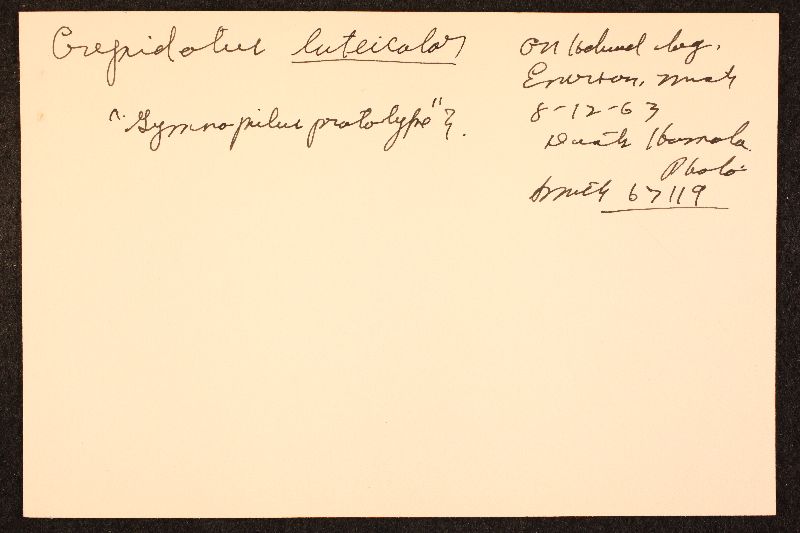 Crepidotus luteicolor
"Gymnopilus prototype" }.
on hdwd log.
Emerson, Mich
8-12-63
Smith
Photo
Smith 67119